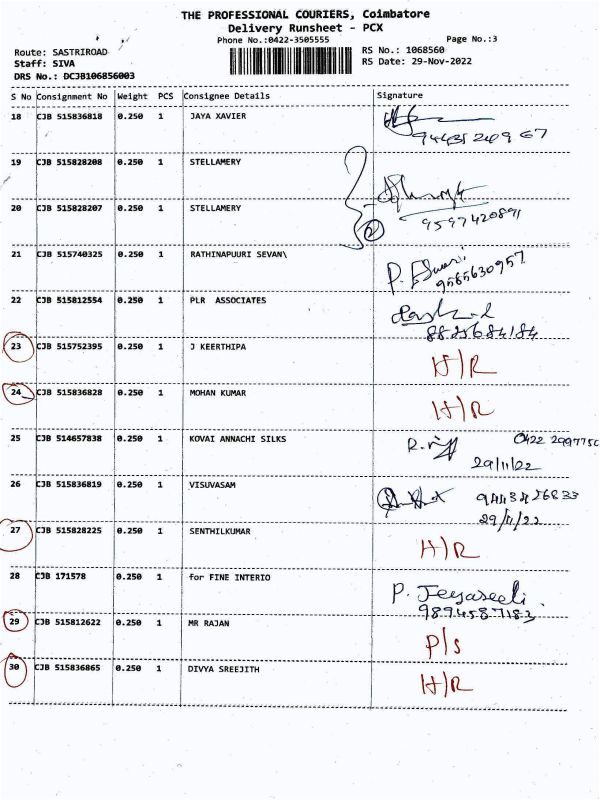 THE PROFESSIONAL COURIERS, Coimbatore
Delivery Runsheet - PCX
Phone No.:0422-3505555 Page No.:3
Route: SASTRIROAD RS No.: 1068560
Staff: SIVA RS Date: 29-Nov-2022
DRS No.: DCJB106856003
S No Consignment No Weight PCS Consignee Details Signature
18 CJB 515836818 0.250 1 JAYA XAVIER
19 CJB 515828208 0.250 1 STELLAMERY
20 CJB 515828207 0.250 1 STELLAMERY 2
9597420891
21 CJB 515740325 0.250 1 RATHINAPUURI SEVAN\ P. Eswari
9585630957
22 CJB 515812554 0.250 1 PLR ASSOCIATES
8825684184
23 CJB 515752395 0.250 1 J KEERTHIPA H/R
24 CJB 515836828 0.250 1 MOHAN KUMAR H/R
25 CJB 514657838 0.250 1 KOVAI ANNACHI SILKS 0422 2997750
29/11/22
26 CJB 515836819 0.250 1 VISUVASAM 9443426833
29/11/22
27 CJB 515828225 0.250 1 SENTHILKUMAR H/R
28 CJB 171578 0.250 1 for FINE INTERIO P. Jeyaseeli.
9894587183
29 CJB 515812622 0.250 1 MR RAJAN P/S
30 CJB 515836865 0.250 1 DIVYA SREEJITH H/R